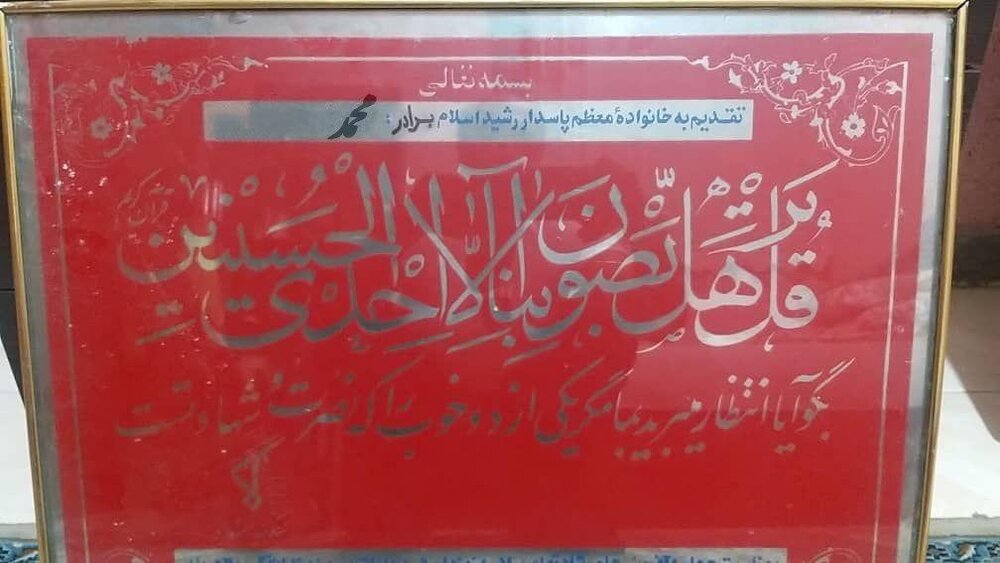 بسمه تعالی
تقدیم به خانوادهٔ معظم پاسدار رشید اسلام برادر: محمد
قُل هَل تَرَبَّصونَ بِنا اِلّا اِحدَی الحُسنَیَینِ قرآن کریم
بگو آیا انتظار میبرید بما مگر یکی از دو خوب را که نصرت و شهادتست